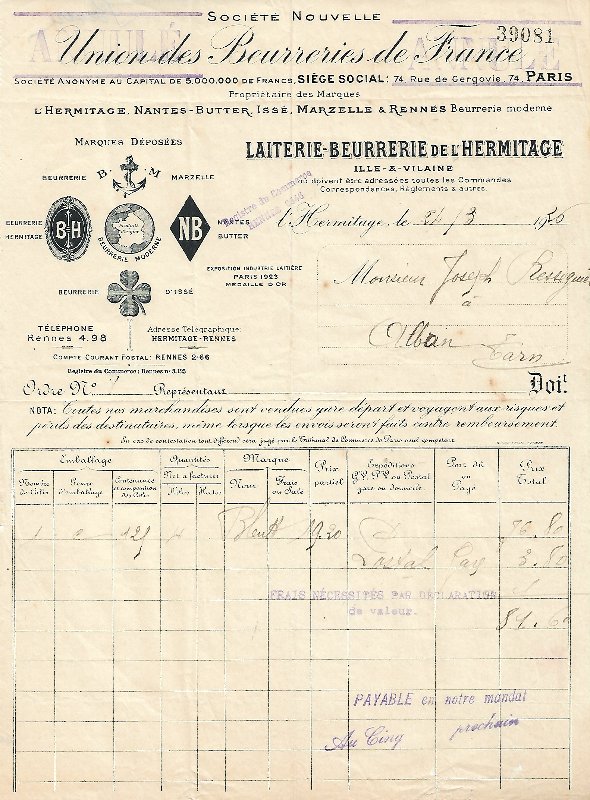 SOCIÉTÉ NOUVELLE
39081
Union des Beurreries de France
SOCIÉTÉ ANONYME AU CAPITAL DE 5.000.000 DE FRANCS, SIÈGE SOCIAL: 74, Rue de Gergovie, 74, PARIS
Propriétaire des Marques
L'HERMITAGE, NANTES-BUTTER, ISSÉ, MARZELLE & RENNES Beurrerie moderne
MARQUES DÉPOSÉES
LAITERIE-BEURRERIE DE L'HERMITAGE
ILLE-&-VILAINE
où doivent être adressées toutes les Commandes
Correspondances, Règlements & autres.
B M
BEURRERIE MARZELLE
Registre du Commerce
RENNES
l'Hermitage, le 24/3 1926
BEURRERIE HERMITAGE
B-H
BEURRERIE MODERNE
NB
NANTES BUTTER
EXPOSITION INDUSTRIE LAITIÈRE
PARIS 1923
MÉDAILLE D'OR
Monsieur Joseph
à
Alban
Tarn
BEURRERIE D'ISSÉ
TÉLÉPHONE
Rennes 4.98
Adresse Télégraphique:
HERMITAGE-RENNES
COMPTE COURANT POSTAL: RENNES 2-66
Registre du Commerce: Rennes nº
Ordre Nº Représentant
Doit
NOTA: Toutes nos marchandises sont vendues gare départ et voyagent aux risques et
périls des destinataires, même lorsque les envois seront faits contre remboursement.
En cas de contestation tout différend sera jugé par le Tribunal de Commerce de Paris seul compétent
Emballage Quantités Marque Prix partiel Expéditions G.V. P.V. ou Postal gare ou domicile. Port dû ou Payé Prix Total
Nombre de Colis Genre d'emballage Contenance et composition des Colis Net à facturer Kilos Mottes Nom Frais ou Salé
1 19,20 76.80
Postal Pay
FRAIS NÉCESSITÉS PAR DECLARATION
de valeur.
81.60
PAYABLE en notre mandat
Au Cinq prochain